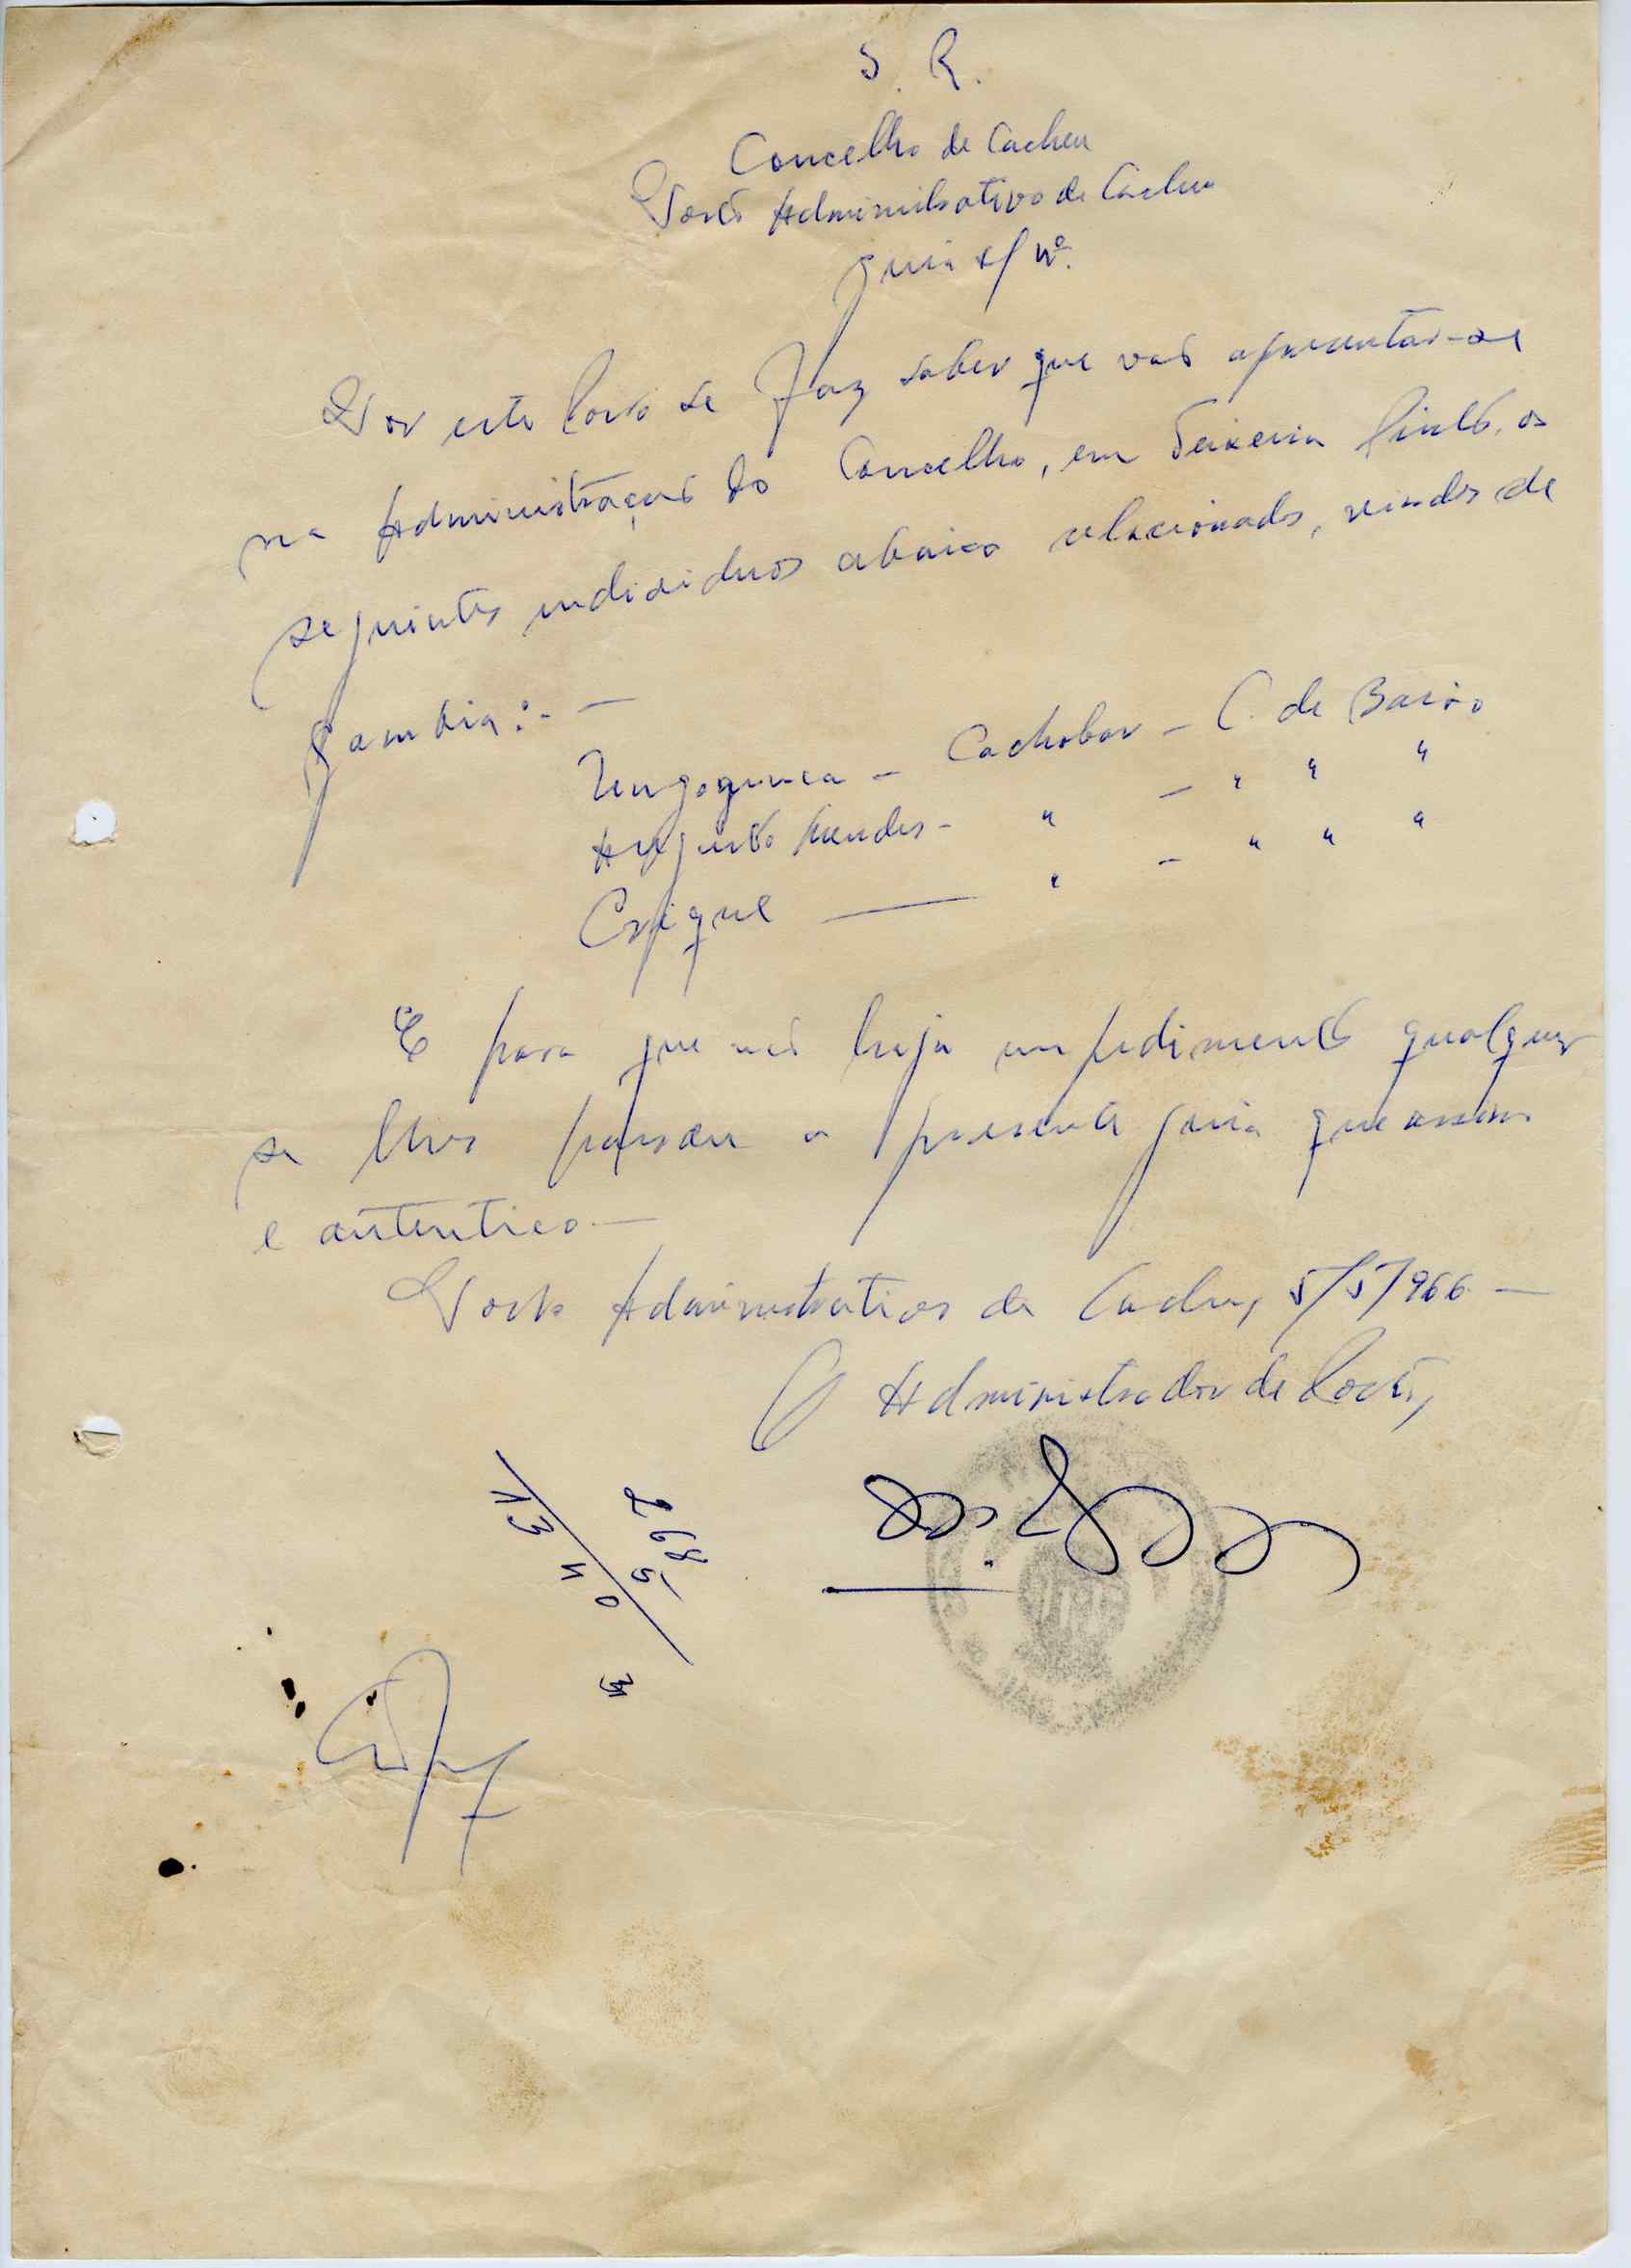 S. R.
Concelho de Cacheu
Posto Administrativo de Cacheu
Guia s/ Nº.
Por este Posto se faz saber que vão apresentar-se
na Administração do Concelho, em Teixeira Pinto, os
seguintes individuos abaixo relacionados, vindos de
Gambia:-
- Cachobar - C. de Baixo
Augusto Mendes - " - " " "
" - " " "
E para que não haja impedimento qualquer
se lhes passou a presente guia que assino
e autentico.-
Posto Administrativo de Cacheu, 5/5/966-
O Administrador de Posto,
268
5
1340